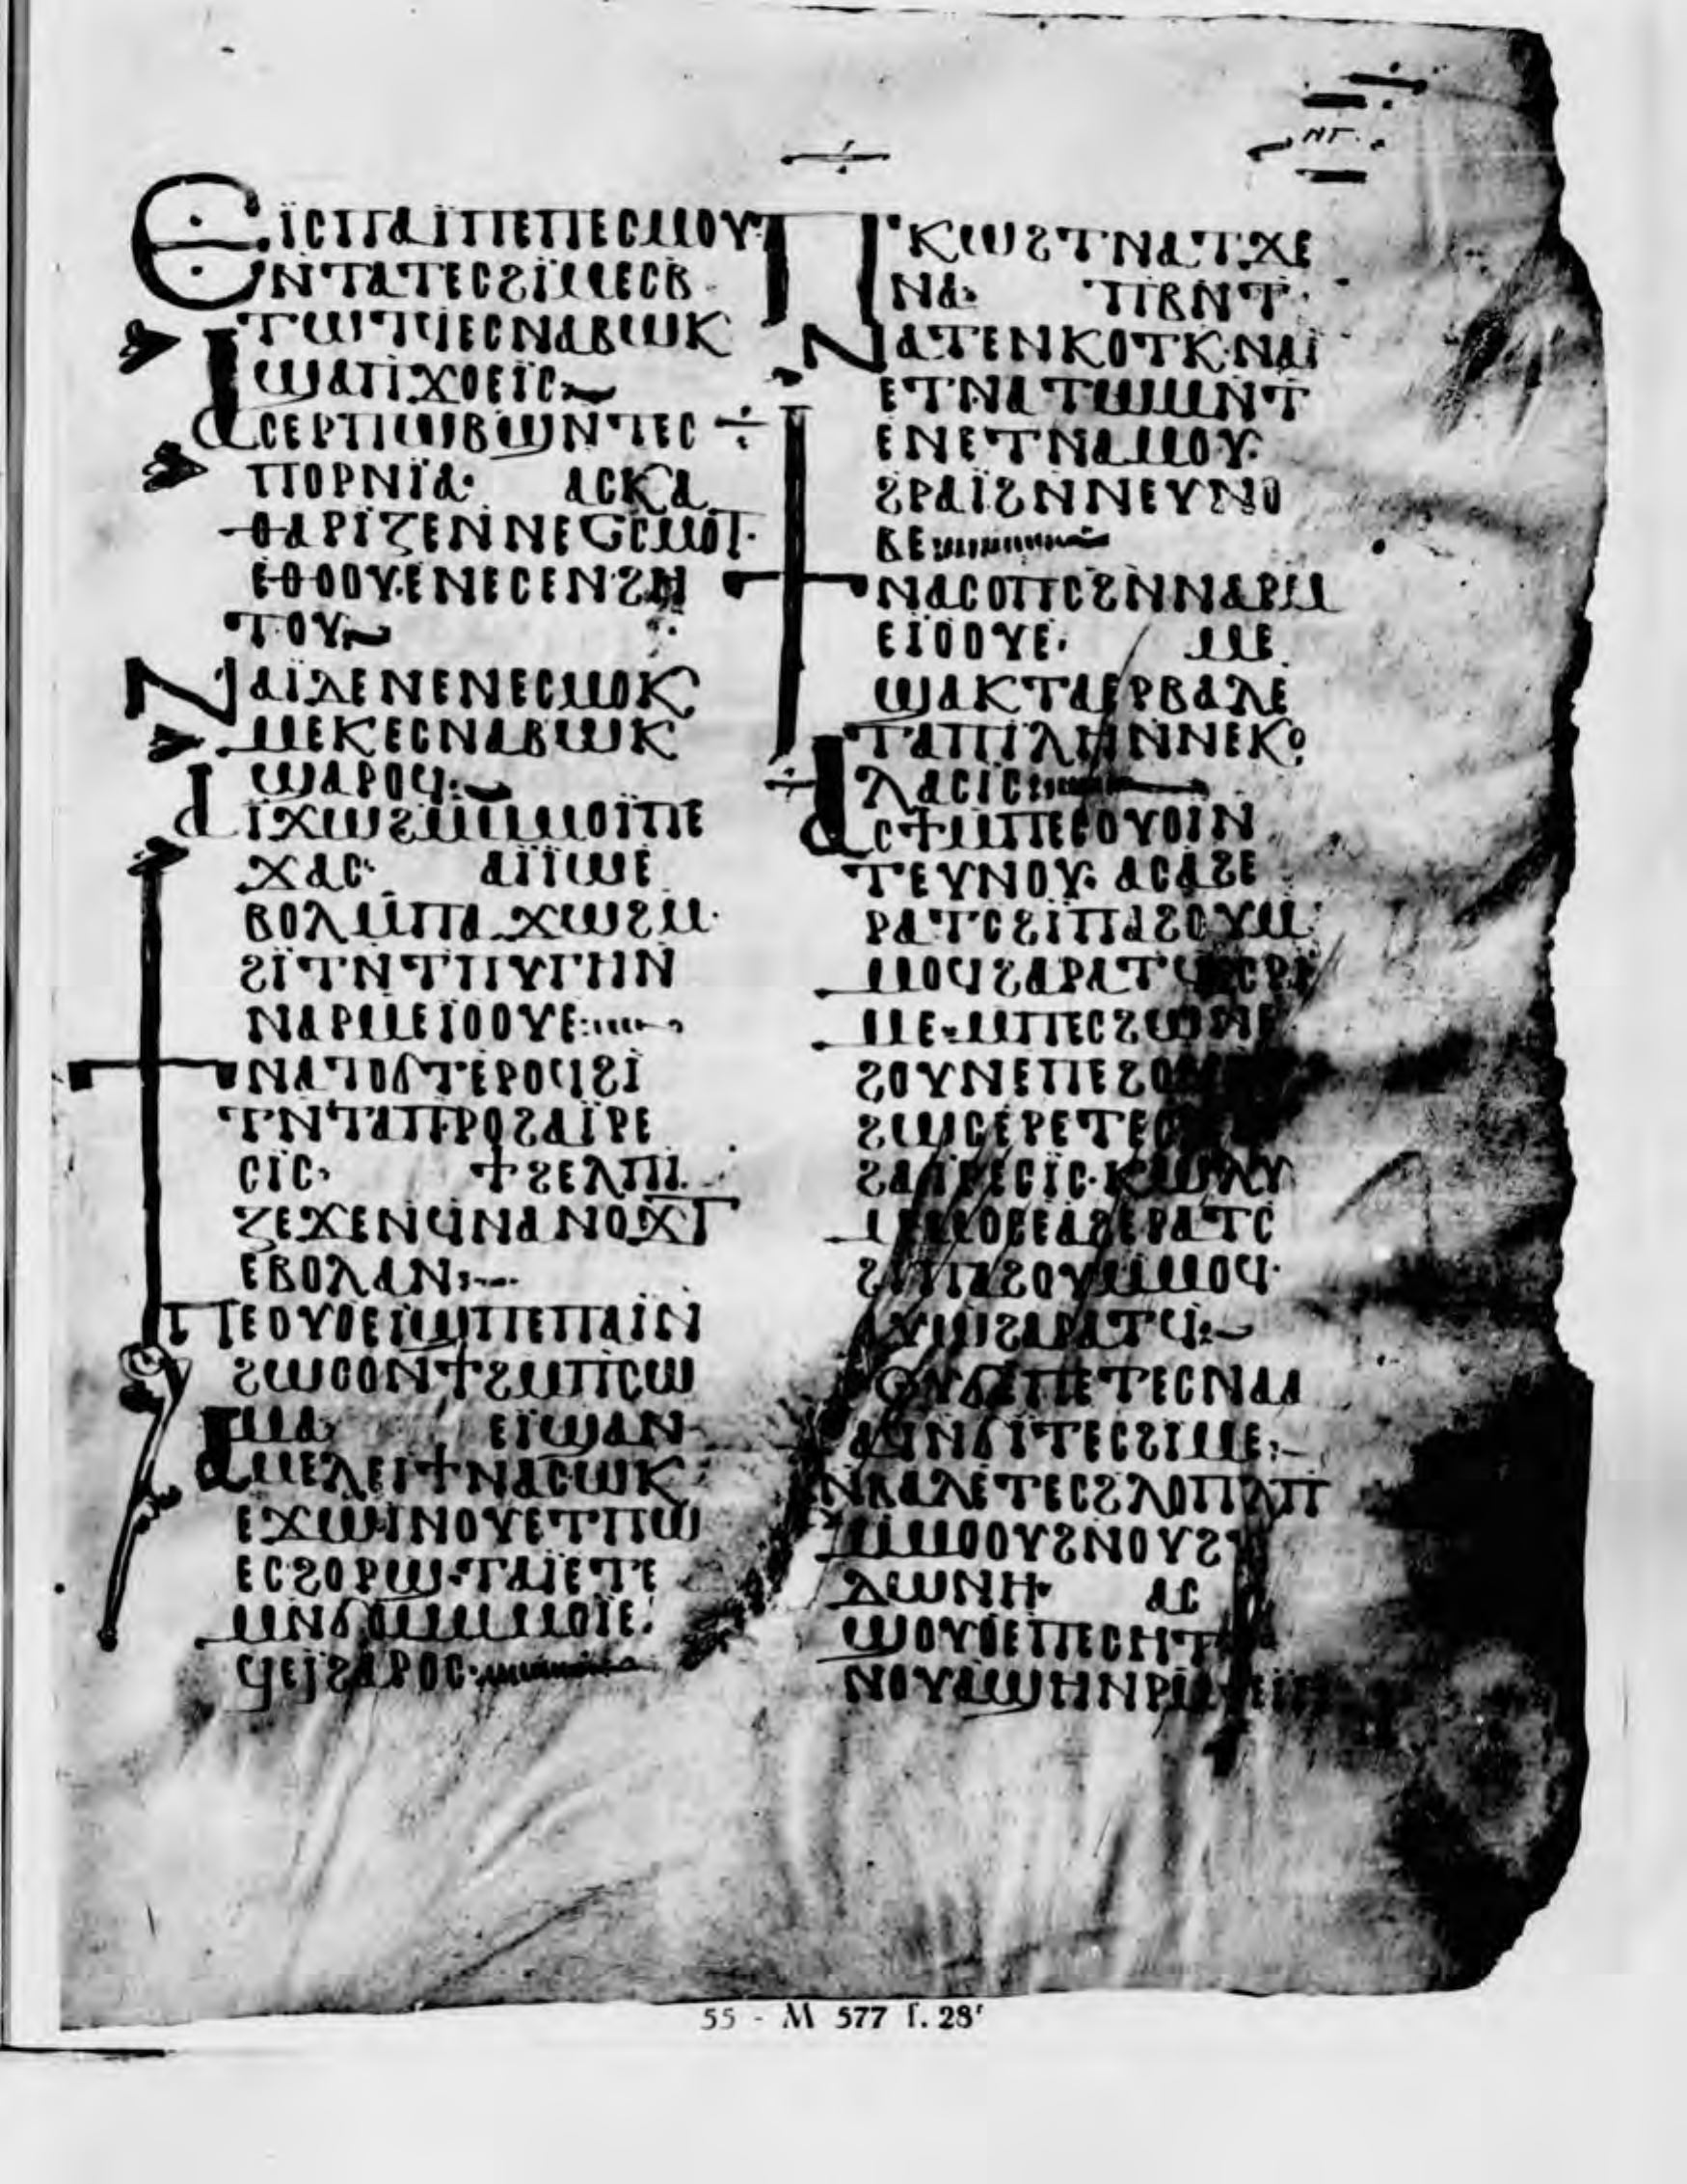 ⲛⲅ
Ⲉⲓⲥⲡⲁⲓⲡⲉⲡⲉⲥⲙⲟⲩ
ⲛⲧⲁⲧⲉⲥϩⲓⲙⲉⲥⲃ
ⲧⲱⲧⲡⲉⲥⲛⲁⲃⲱⲕ
ϣⲁⲡϫⲟⲉⲓⲥ
ⲁⲥⲉⲣⲡⲱⲃϣⲛⲧⲉⲥ
ⲡⲟⲣⲛⲓⲁ· ⲁⲥⲕⲁ
ⲑⲁⲣⲓⲍⲉⲛⲛⲉⲥⲥⲙⲟⲧ·
ⲉⲑⲟⲟⲩ·ⲉⲛⲉⲥⲉⲛϩⲏ
ⲧⲟⲩ
Ⲛⲁⲓⲇⲉⲛⲉⲛⲉⲥⲙⲟⲕ
ⲙⲉⲕⲉⲥⲛⲁⲃⲱⲕ
ϣⲁⲣⲟϥ:
ⲁⲓϫⲱϩⲙⲙⲙⲟⲓⲡⲉ
ϫⲁⲥ· ⲁⲓⲡⲱⲉ
ⲃⲟⲗⲙⲡⲁϫⲱϩⲙ·
ϩⲓⲧⲛⲧⲡⲩⲅⲏⲛ
ⲛⲁⲣⲙⲉⲓⲟⲟⲩⲉ:
ⲛⲁⲧⲟϭⲧⲉⲣⲟϥϩⲓ
ⲧⲛⲧⲁⲡⲣⲟϩⲁⲓⲣⲉ
ⲥⲓⲥ· ϯϩⲉⲗⲡⲓ
ⲍⲉϫⲉⲛϥⲛⲁⲛⲟϫⲧ
ⲉⲃⲟⲗⲁⲛ:
Ⲡⲉⲟⲩⲟⲉⲓϣⲡⲉⲡⲁⲓⲉⲓ
ϩⲱⲥⲟⲛϯϩⲙⲡⲥⲱ
ⲙⲁ· ⲉⲓϣⲁⲛ
ⲁⲙⲉⲗⲉⲓϯⲛⲁⲥⲱⲕ
ⲉϫⲱⲓⲛⲟⲩⲉⲧⲡⲱ
ⲉⲥϩⲟⲣϣ·ⲧⲁⲓⲉⲧⲉ
ⲙⲛϭⲟⲙⲙⲙⲟⲓⲉ
ϥⲉⲓϩⲁⲣⲟⲥ·
Ⲡⲕⲱϩⲧⲛⲁⲧϫⲉ
ⲛⲁ· ⲡⲃⲛⲧ·
Ⲛⲁⲧⲉⲛⲕⲟⲧⲕ·ⲛⲁⲓ
ⲉⲧⲛⲁⲧⲱⲙⲛⲧ
ⲉⲛⲉⲧⲛⲁⲙⲟⲩ·
ϩⲣⲁⲓϩⲛⲛⲉⲩⲛⲟ
ⲃⲉ
ⲛⲁⲥⲟⲡⲥϩⲛⲛⲁⲣⲙ
ⲉⲓⲟⲟⲩⲉ· ⲙⲉ
ϣⲁⲕⲧⲁⲉⲣⲃⲁⲗⲉ
ⲧⲁⲡⲓⲗⲏⲛⲛⲉⲕⲟ
ⲗⲁⲥⲓⲥ:
ⲁⲥϯⲙⲡⲉⲥⲟⲩⲟⲓⲛ
ⲧⲉⲩⲛⲟⲩ· ⲁⲥⲁϩⲉ
ⲣⲁⲧⲥϩⲓⲡⲁϩⲟⲩⲙ
ⲙⲟϥϩⲁⲣⲁⲧϥ
ⲙⲉ·ⲙⲡⲉⲥϩⲱⲛⲉ
ϩⲟⲩⲛⲉⲡⲉϩⲟ
ϩⲱⲥⲉⲣⲉⲧⲉ
ϩⲁⲓⲣⲉⲥⲓⲥ·ⲕⲱⲗⲩ
ⲙⲙⲟⲥⲉⲁϩⲉⲣⲁⲧⲥ
ϩⲓⲡⲁϩⲟⲩⲙⲙⲟϥ·
ⲁⲩⲱϩⲁⲣⲁⲧϥ:
ⲟⲩⲡⲉⲧⲉⲥⲛⲁⲁ
ⲁϥⲛϭⲓⲧⲉⲥϩⲓⲙⲉ:
ⲛⲕⲁⲗⲉⲧⲉⲥϩⲗⲟⲡⲗⲡ
ⲙⲙⲟⲟⲩϩⲛⲟⲩϩ
ⲇⲱⲛⲏ· ⲁⲥ
ϣⲟⲩⲟⲉⲡⲉⲥⲏⲧ
ⲛⲟⲩⲁϣⲏⲛⲣⲙⲉⲓⲏ
55 - M 577 f. 28ʳ